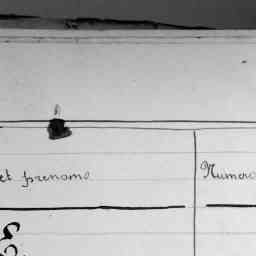 et prenoms Numero
E